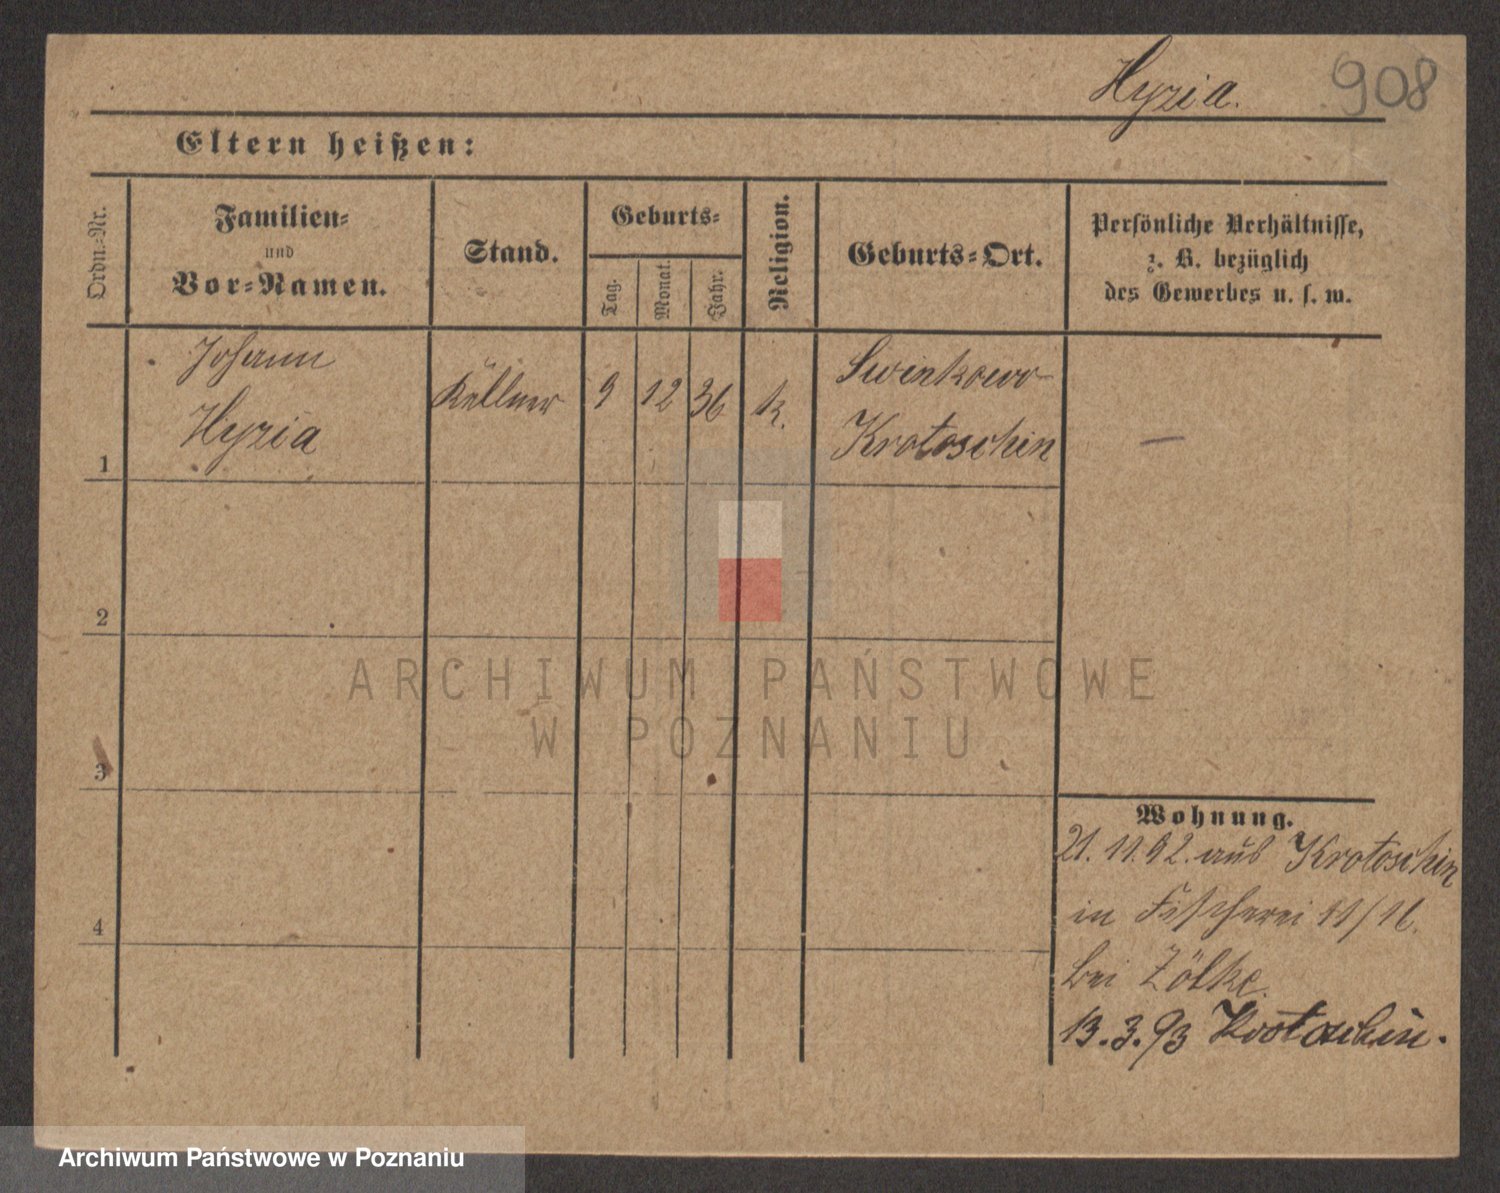 Hyzia.
908
Eltern heißen:
Ordn.=Nr.
Familien=
und
Vor=Namen.
Stand.
Geburts=
Tag.
Monat.
Jahr.
Religion.
Geburts=Ort.
Persönliche Verhältnisse,
z. B. bezüglich
des Gewerbes u. s. w.
1
Johann
Hyzia
Kellner
9
12
36
k.
Swinkowo
Krotoschin
—
2
3
4
Wohnung.
21. 11. 92. aus Krotoschin
in Fischerei 11/16.
bei Zölke.
13. 3. 93 Krotoschin.
ARCHIWUM PAŃSTWOWE
W POZNANIU
Archiwum Państwowe w Poznaniu